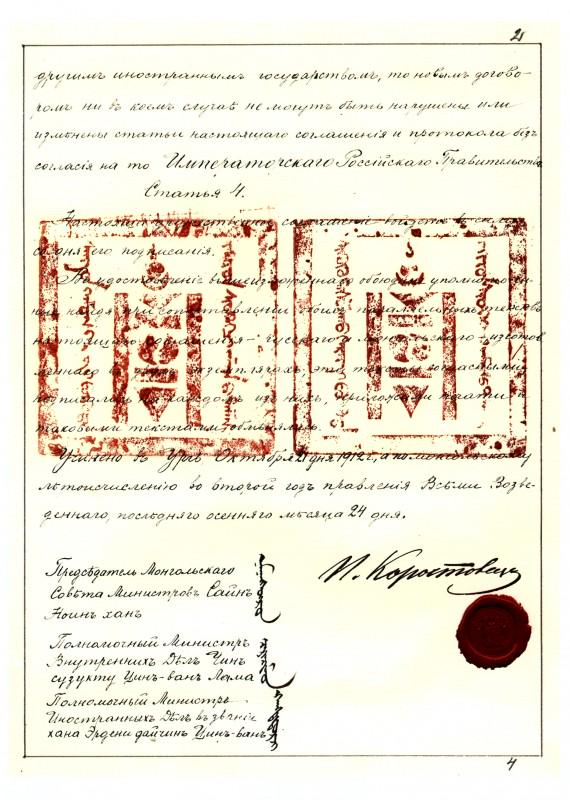 2
другимъ иностраннымъ государствомъ, то новымъ догово-
ромъ ни въ коемъ случаѣ не могутъ быть нарушены или
измѣнены статьи настоящаго соглашенія и протокола безъ
согласія на то Императорскаго Россійскаго Правительства
Статья 4.
Настоящее соглашеніе войдетъ въ силу
со дня его подписанія.
Въ удостовѣреніе вышеизложеннаго обоюдные уполномочен-
ные найдя при сопоставленіи обоихъ параллельныхъ текстовъ
настоящаго соглашенія – русскаго и монгольскаго – изготов-
леннаго въ двухъ экземплярахъ, эти тексты согласными
подписали на каждомъ изъ нихъ, приложили печати и
таковыми текстами обмѣнялись.
Учинено въ Ургѣ Октября 21 дня 1912 г., а по монгольскому
лѣтоисчисленію во второй годъ правленія Всѣми Возве-
деннаго, послѣдняго осенняго мѣсяца 24 дня.
Предсѣдатель Монгольскаго
Совѣта Министровъ Саинъ
Ноинъ ханъ
И. Коростовецъ
Полномочный Министръ
Внутреннихъ Дѣлъ Чинъ
сузукту Цинъ-ванъ Лама
Полномочный Министръ
Иностранныхъ Дѣлъ въ званіи
хана Эрдени дайчинъ Цинъ-ванъ
4